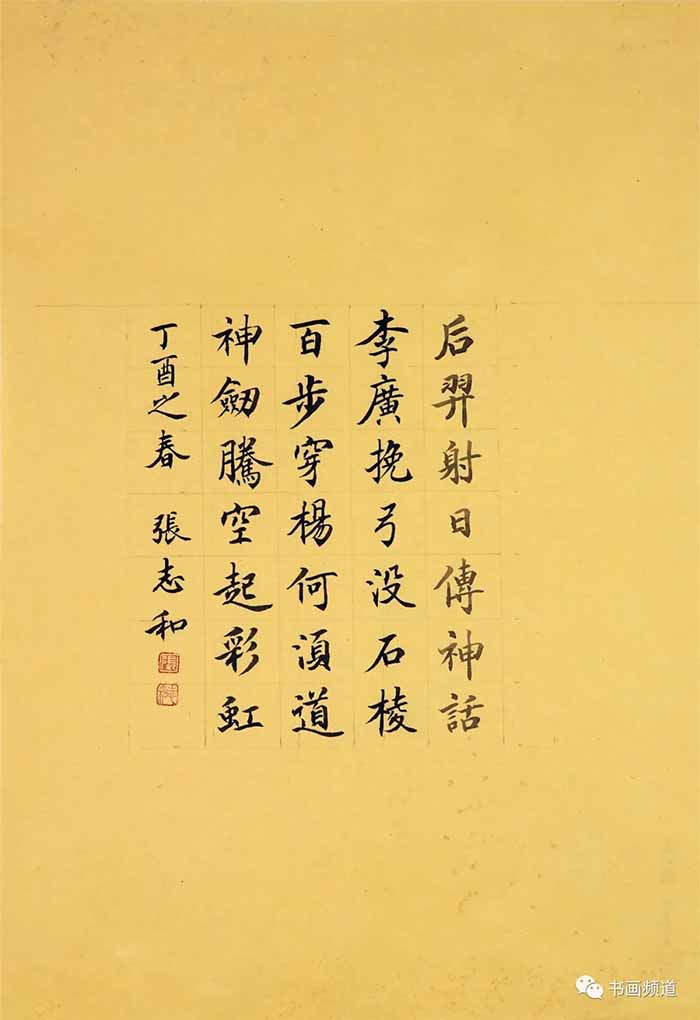 后羿射日傳神話
李廣挽弓没石棱
百步穿楊何湏道
神劒騰空起彩虹
丁酉之春 張志和
书画频道